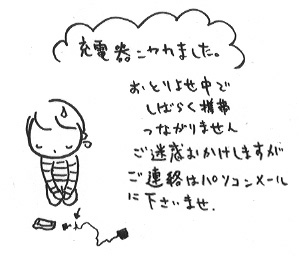 充電器こわれました。
おとりよせ中で
しばらく携帯
つながりません
ご迷惑おかけしますが
ご連絡はパソコンメール
に下さいませ.